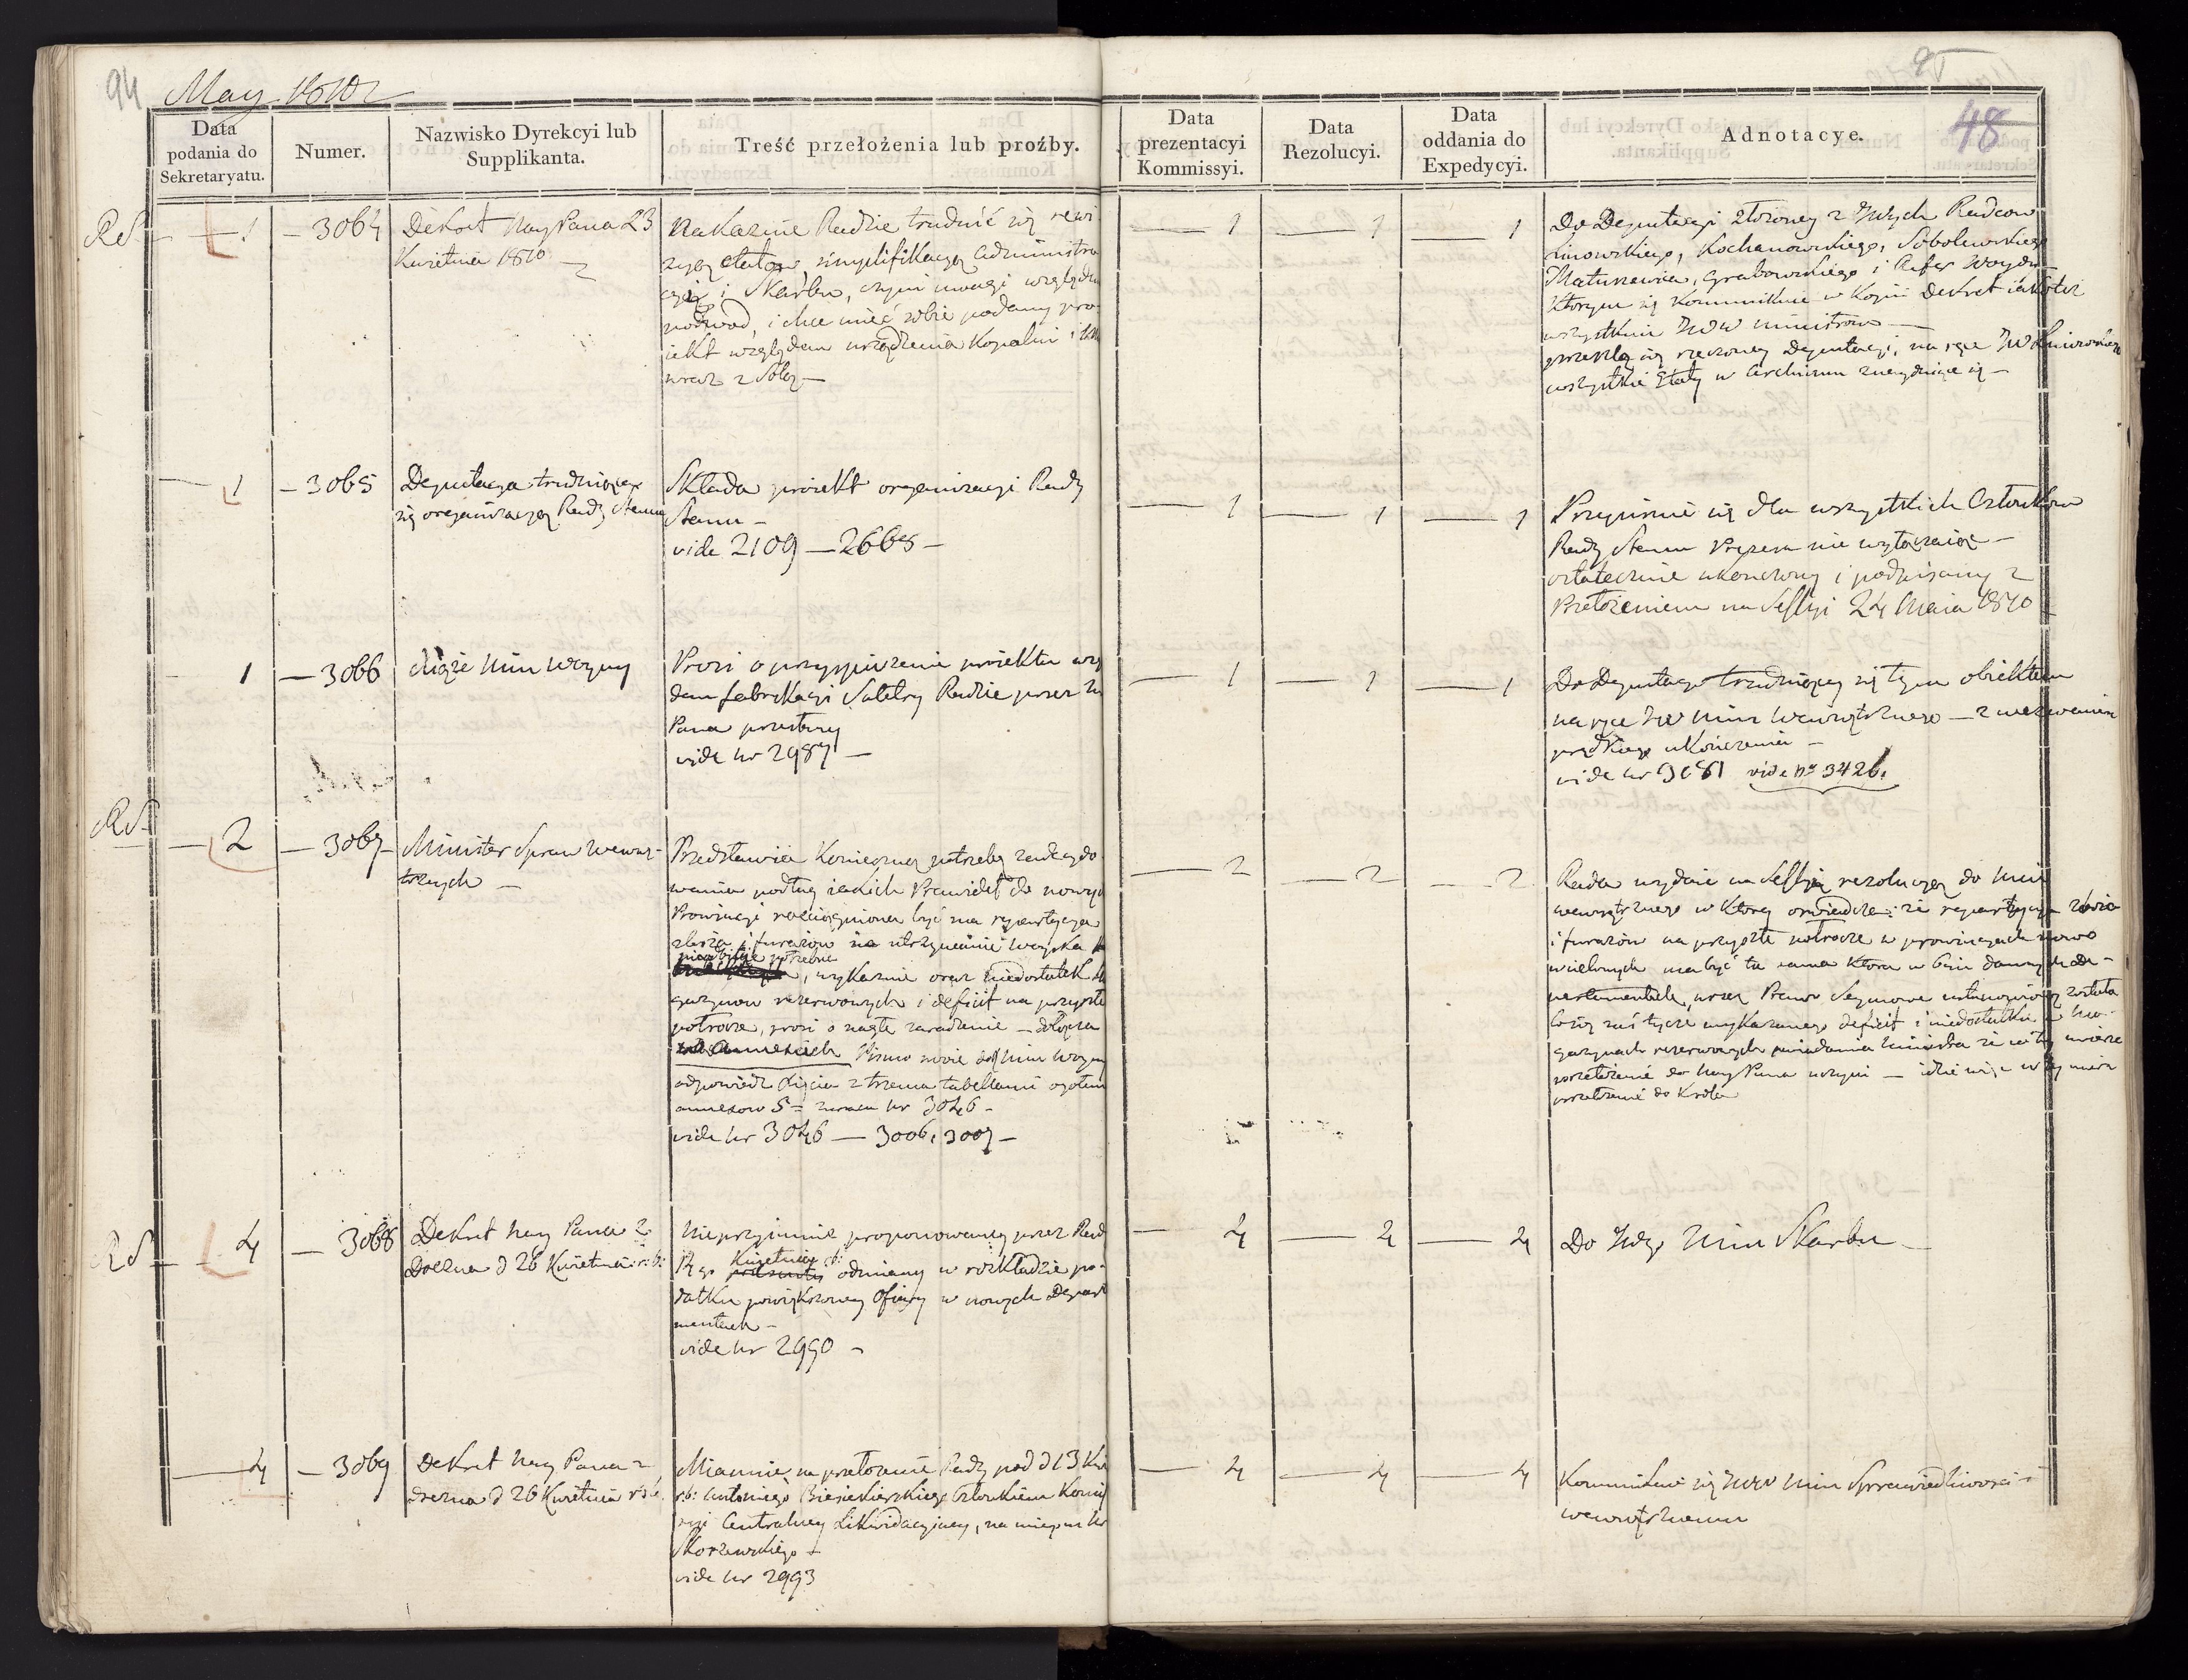 94
May 1810
Data podania do Sekretaryatu.
Numer.
Nazwisko Dyrekcyi lub Supplikanta.
Treść przełożenia lub proźby.
Data prezentacyi Kommissyi.
Data Rezolucyi.
Data oddania do Expedycyi.
Adnotacye.
48
RS
1
3064
Dekret Nay Pana 23
Kwietnia 1810
Nakazuie Radzie trudnić się rewi
zyą etatow, simplifikacyą administra
cyi i Skarbu, czyni uwagi względem
podwod, i chce mieć sobie podany pro
iekt względem urządzenia Kopalni i
wraz z Solą
1
1
1
Do Deputacyi złożoney z JWych Radcow
Linowskiego, Kochanowskiego, Sobolewskiego
Matusewica, Grabowskiego i
ktorym się kommunikuie w Kopii Dekret iakoteż
wszystkim JWW Ministrow
przeszlą się rzeczoney Deputacyi, na ręce JW Linowskiego
wszystkie Etaty w Archivum znayduiące się
1
3065
Deputacya trudniąca
się organizacyą Rady Stanu
Składa proiekt organizacyi Rady
Stanu
vide 2109 — 2665 —
1
1
1
Przepisuie się dla wszystkich Członkow
Rady Stanu Prezesa nie wyłączaiąc —
ostatecznie ukonczony i podpisany z
Przełożeniem na Sessyi 24 Maia 1810
1
3066
Xiąże Min Woyny
Prosi o przyspieszenie proiektu wzglę
dem fabrykacyi Saletry Radzie przez N
Pana przesłany
vide Nr 2987 —
1
1
1
Do Deputacyi trudniącey się tym obiektem
na ręce JW Min Wewnętrznego — z wezwaniem
prędkiego ukończenia —
vide Nr 3081 vide Nr 3426.
RS
2
3067
Minister Spraw Wewnę-
trznych —
Przedstawia konieczną potrzebę zadecydo
wania podług iakich Prawideł do nowych
Prowincyi rozciągniona być ma repartycya
zboża i furażow na utrzymanie woyska
nieodbicie potrzebne
, wykazuie oraz niedostatek Ma
gazynow rezerwowych i deficit na przyszłe
połrocze, prosi o nagłe zaradzenie — dołącza
w annexach Pismo swoie do Min Woyny
odpowiedz Xięcia z trzema tabellami ogołem
annexow 5 = zwraca Nr 3046 —
vide Nr 3046 — 3006, 3007 —
2
2
2
Rada wydaie na Sessyi rezolucyą do Min
wewnętrznego w ktorey oswiadcza: że repartycya zboża
i furażow na przyszłe połrocze w prowincyach nowo
wcielonych ma być ta sama ktora w 6ciu dawnych De-
partamentach, przez Prawo Seymowe ustanowioną została
co się zaś tycze wykazanego deficit i niedostatku w Ma-
gazynach rezerwowych zawiadamia Ministra że w tey mierze
przełożenie do Nay Pana uczyni — idzie więc w tey mierze
przełożenie do Krola
RS
4
3068
Dekret Nay Pana z
Drezna d 26 Kwietnia r: b:
Nieprzyimuie proponowaney przez Radę
Kwietnia r: b:
odmiany w rozkładzie po-
datku powiększoney Ofiary w nowych Departa
mentach —
vide Nr 2990 —
4
4
4
Do JWgo Min Skarbu —
4
3069
Dekret Nay Pana z
Drezna d 26 Kwietnia r: b:
Mianuie na przełożenie Rady pod d 13 Kw
r: b: Antoniego Biesiekierskiego Członkiem Komis
syi Centralney Likwidacyiney, na mieysce
Skorzewskiego —
vide Nr 2993
4
4
4
Kommunikuie się JWW Min Sprawiedliwości i
wewnętrznemu